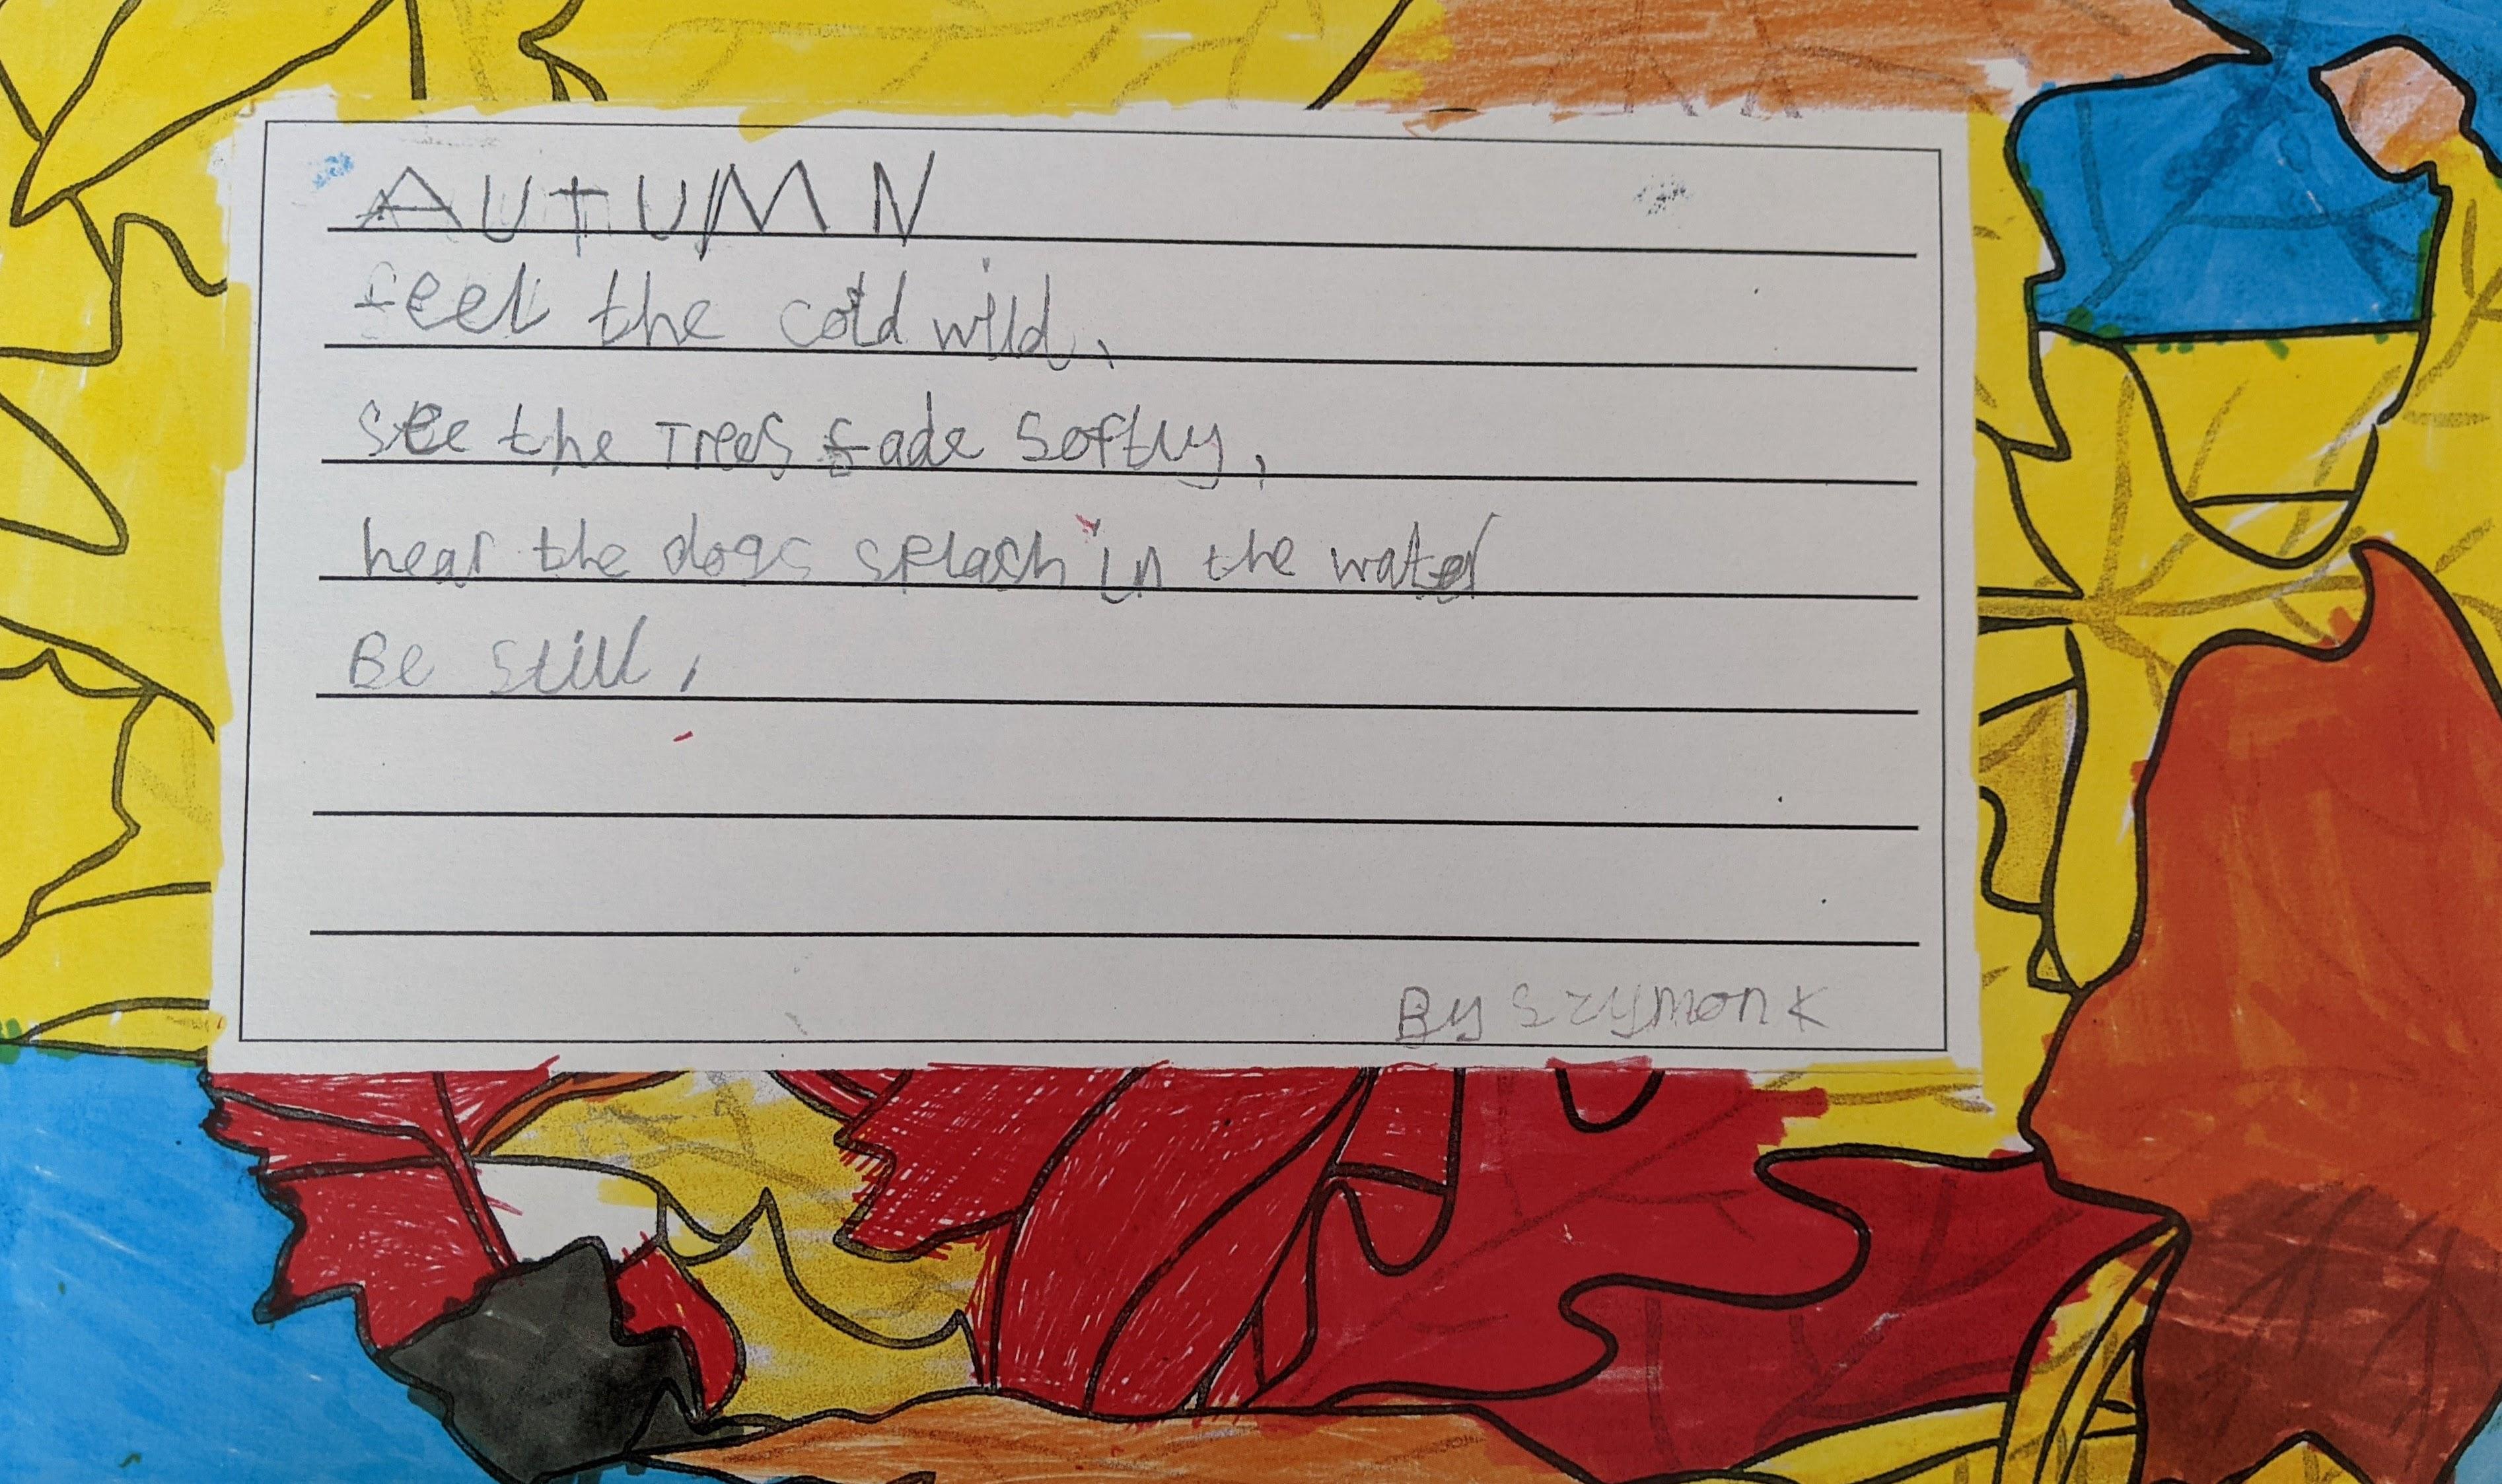 AUTUMN
feel the cold wild,
see the Trees fade softly,
hear the dogs splash in the water
Be still,
By Szymon K